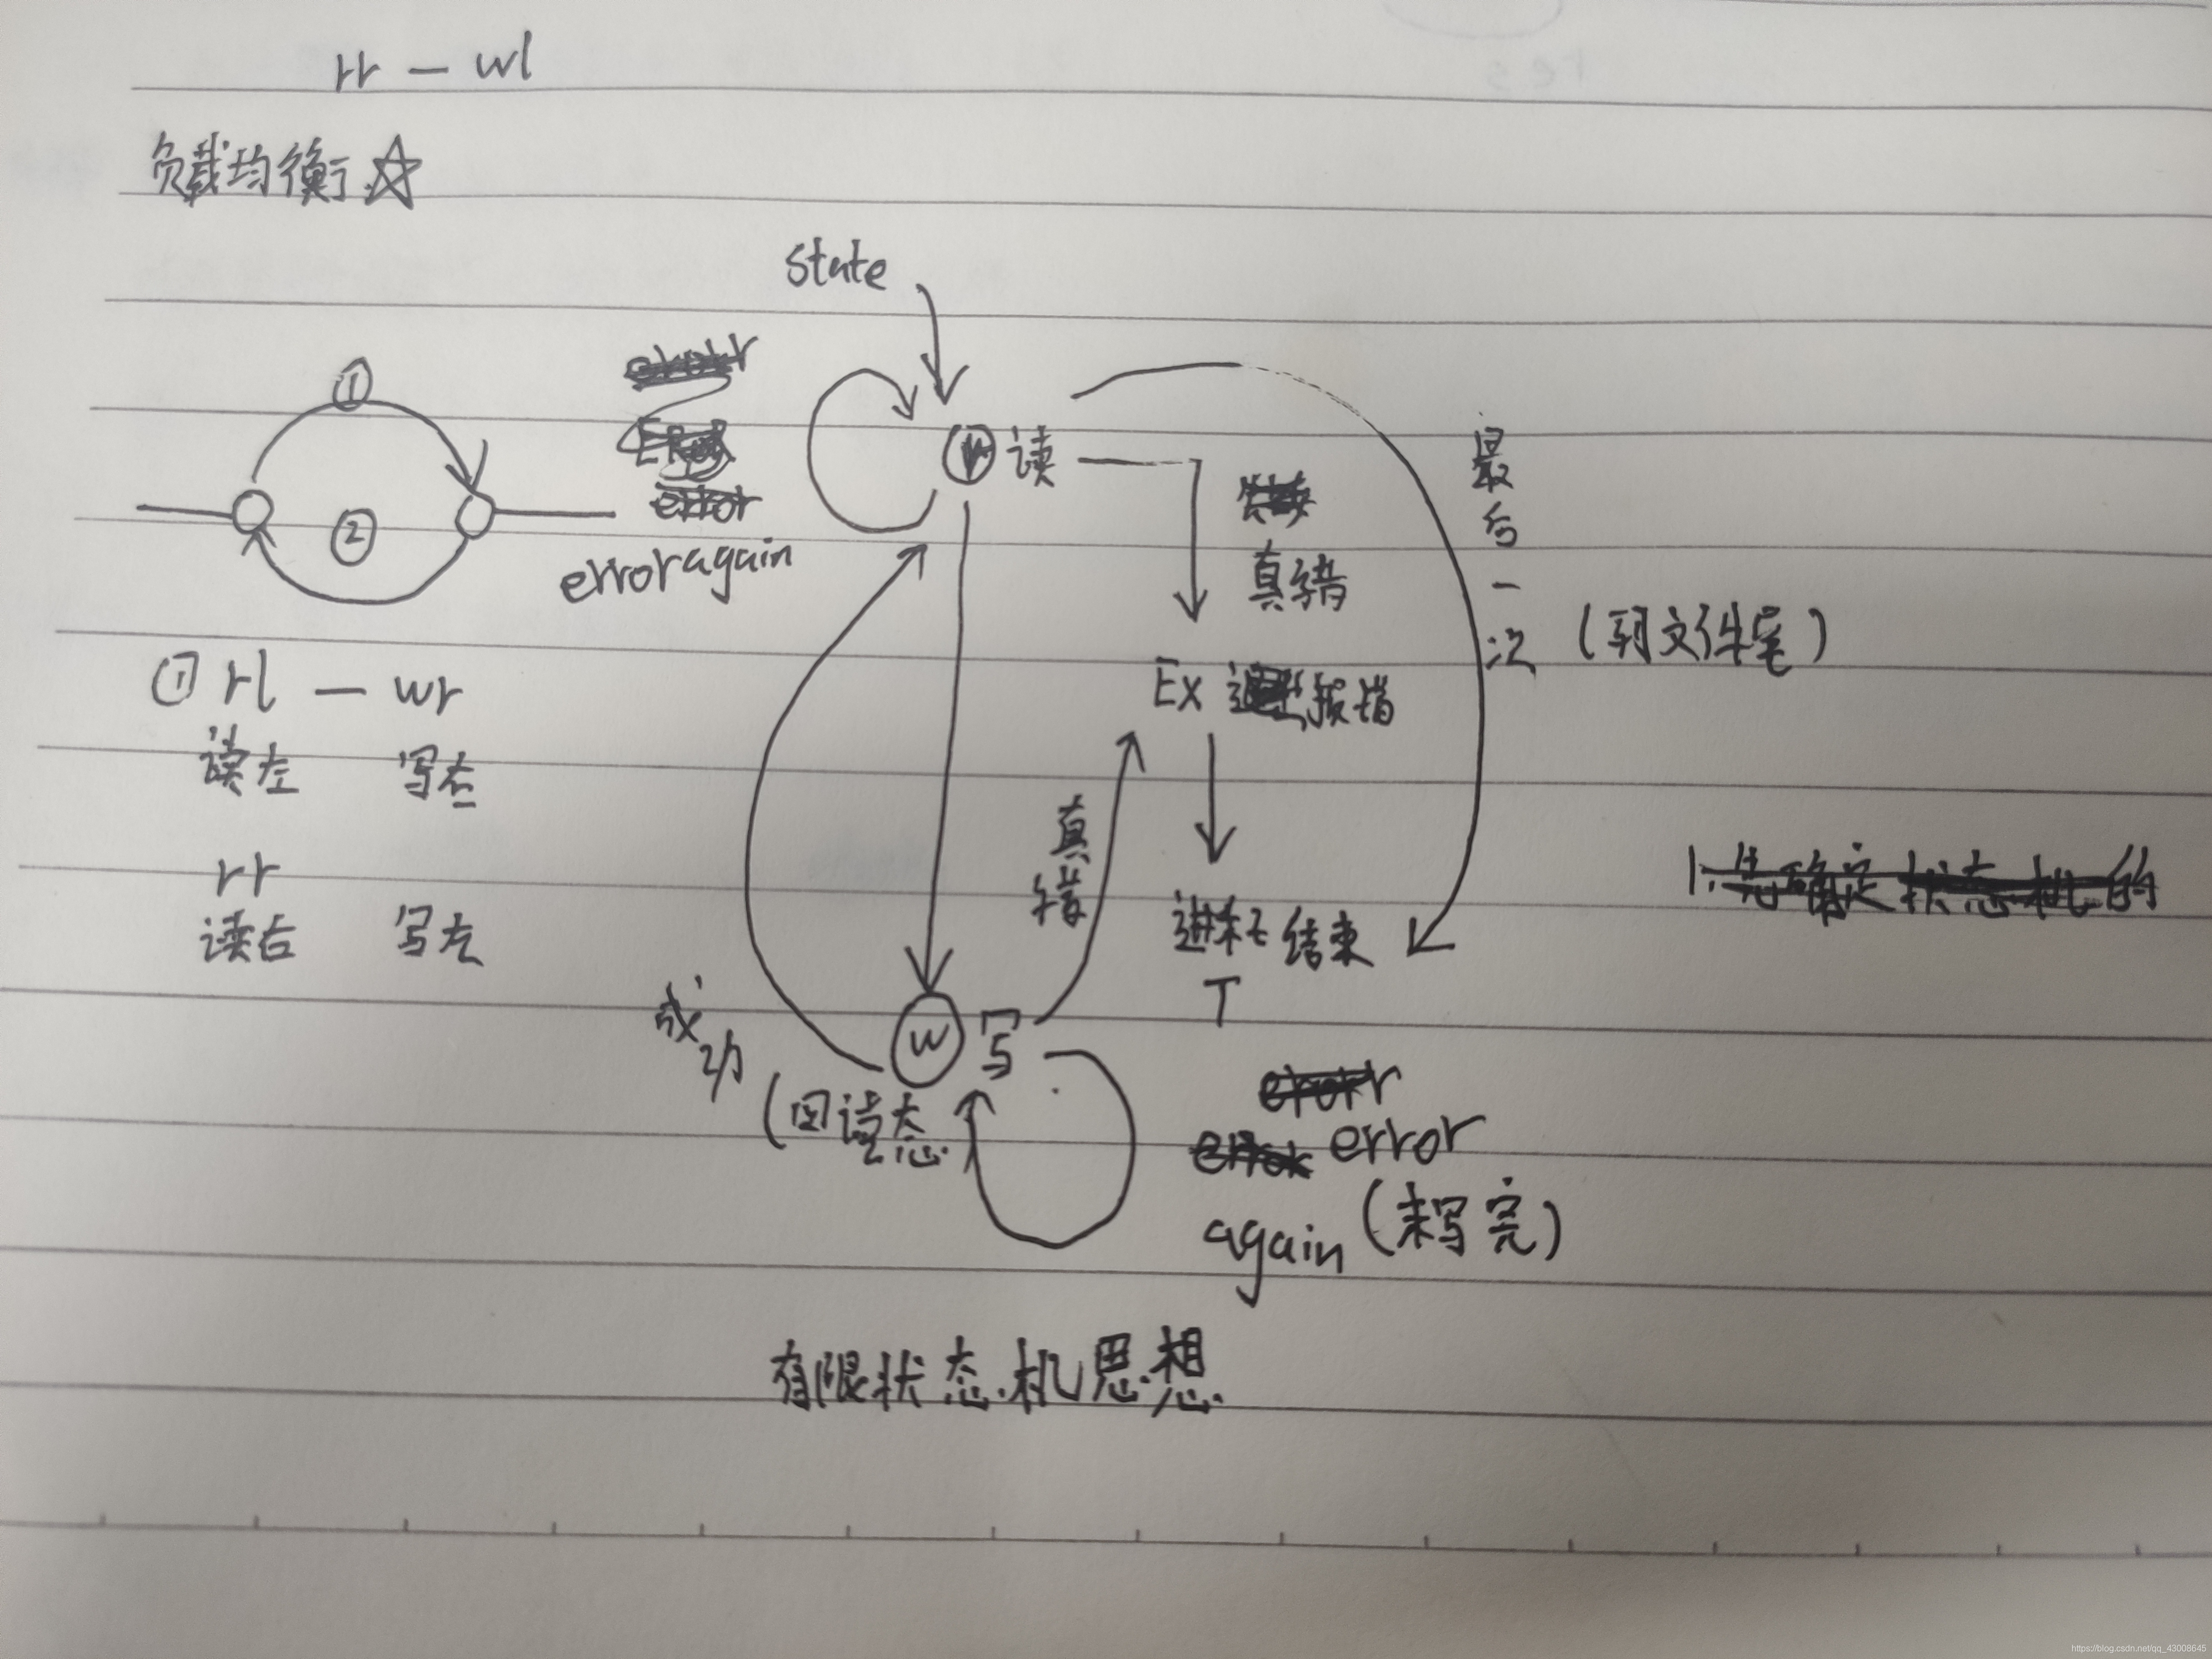 rr — wl
负载均衡 ☆
state
①
②
error again
r 读
最后一次 (到文件尾)
真错
Ex 报错
① rl — wr
读左 写右
rr
读右 写左
真错
进程结束
T
成功
(回读态)
W 写
error
again (未写完)
1.先确定状态机的
有限状态机思想
https://blog.csdn.net/qq_43008645